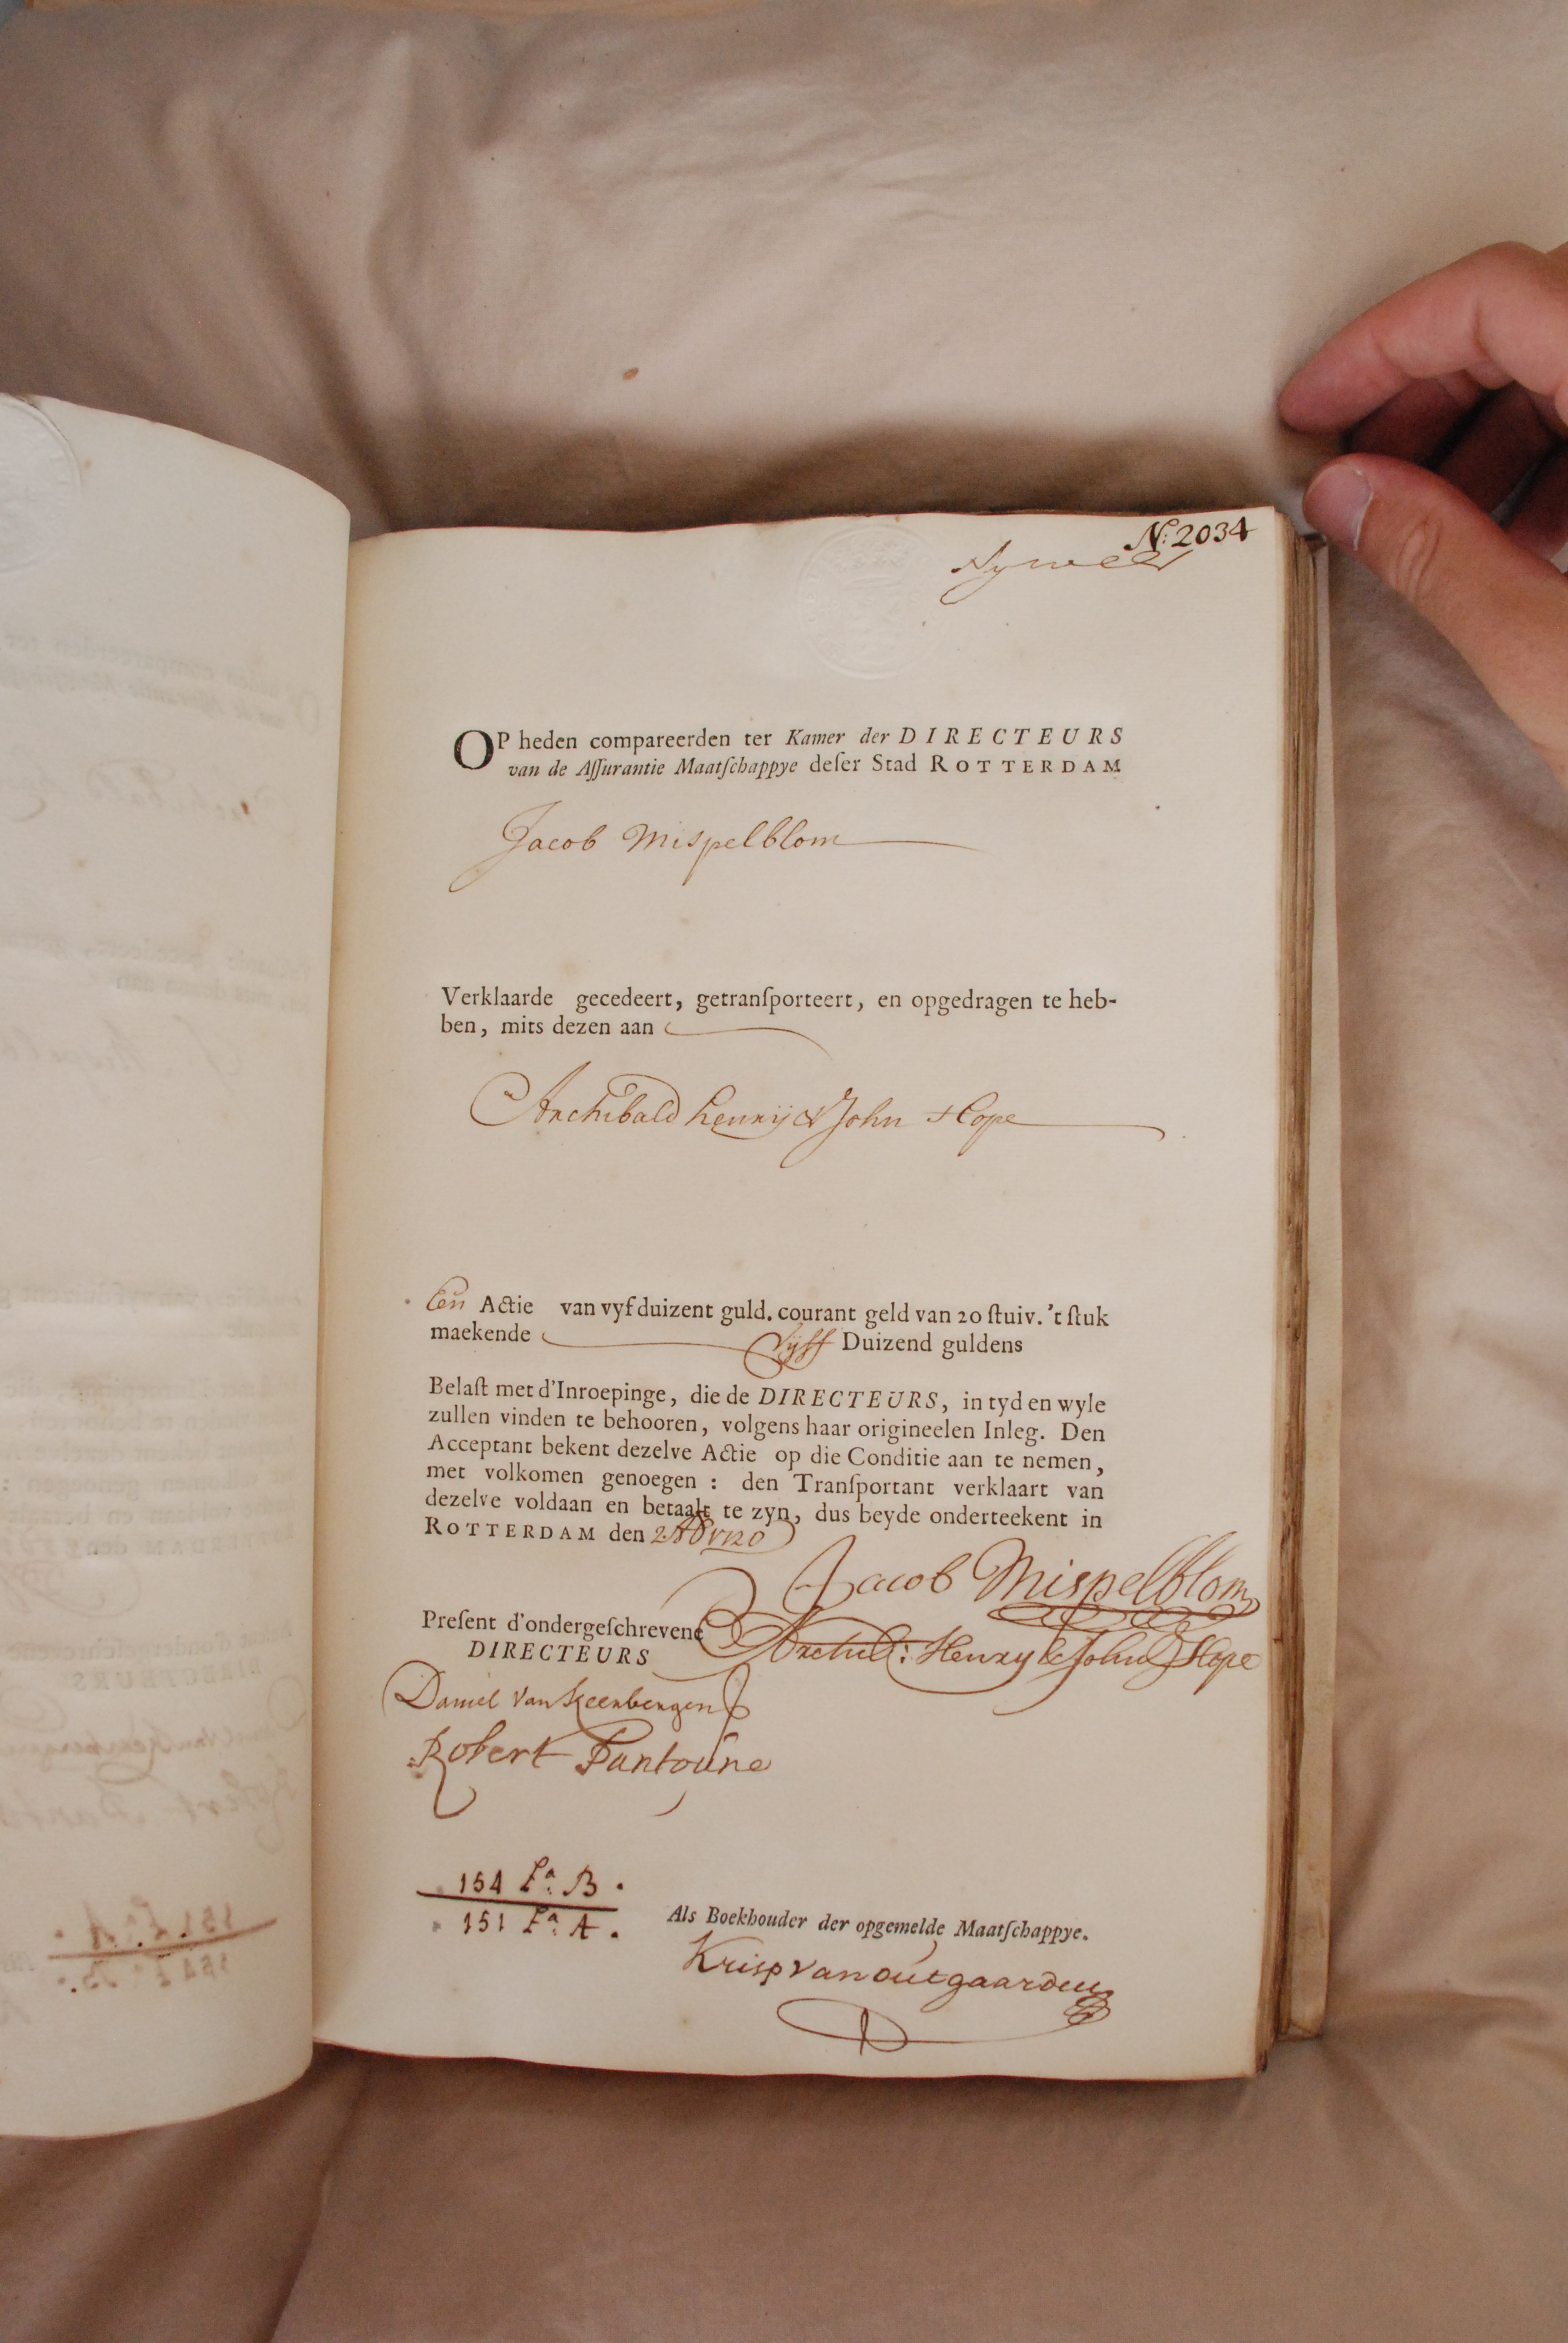 N: 2034
OP heden compareerden ter Kamer der DIRECTEURS
van de Aſſurantie Maatſchappye deſer Stad ROTTERDAM
Jacob Mispelblom
Verklaarde gecedeert, getranſporteert, en opgedragen te heb-
ben, mits dezen aan
Archibald henrij & John Hope
Een Actie van vyf duizent guld. courant geld van 20 ſtuiv. 't ſtuk
maekende Vijff Duizend guldens
Belaſt met d'Inroepinge, die de DIRECTEURS, in tyd en wyle
zullen vinden te behooren, volgens haar origineelen Inleg. Den
Acceptant bekent dezelve Actie op die Conditie aan te nemen,
met volkomen genoegen : den Tranſportant verklaart van
dezelve voldaan en betaalt te zyn, dus beyde onderteekent in
ROTTERDAM den
Jacob Mispelblom
Preſent d'ondergeſchrevene
DIRECTEURS
Archid: Henry & John Hope
Daniel Van
Robert
154 Fa: B.
151 Fa: A.
Als Boekhouder der opgemelde Maatſchappye.
Krisp van outgaarden